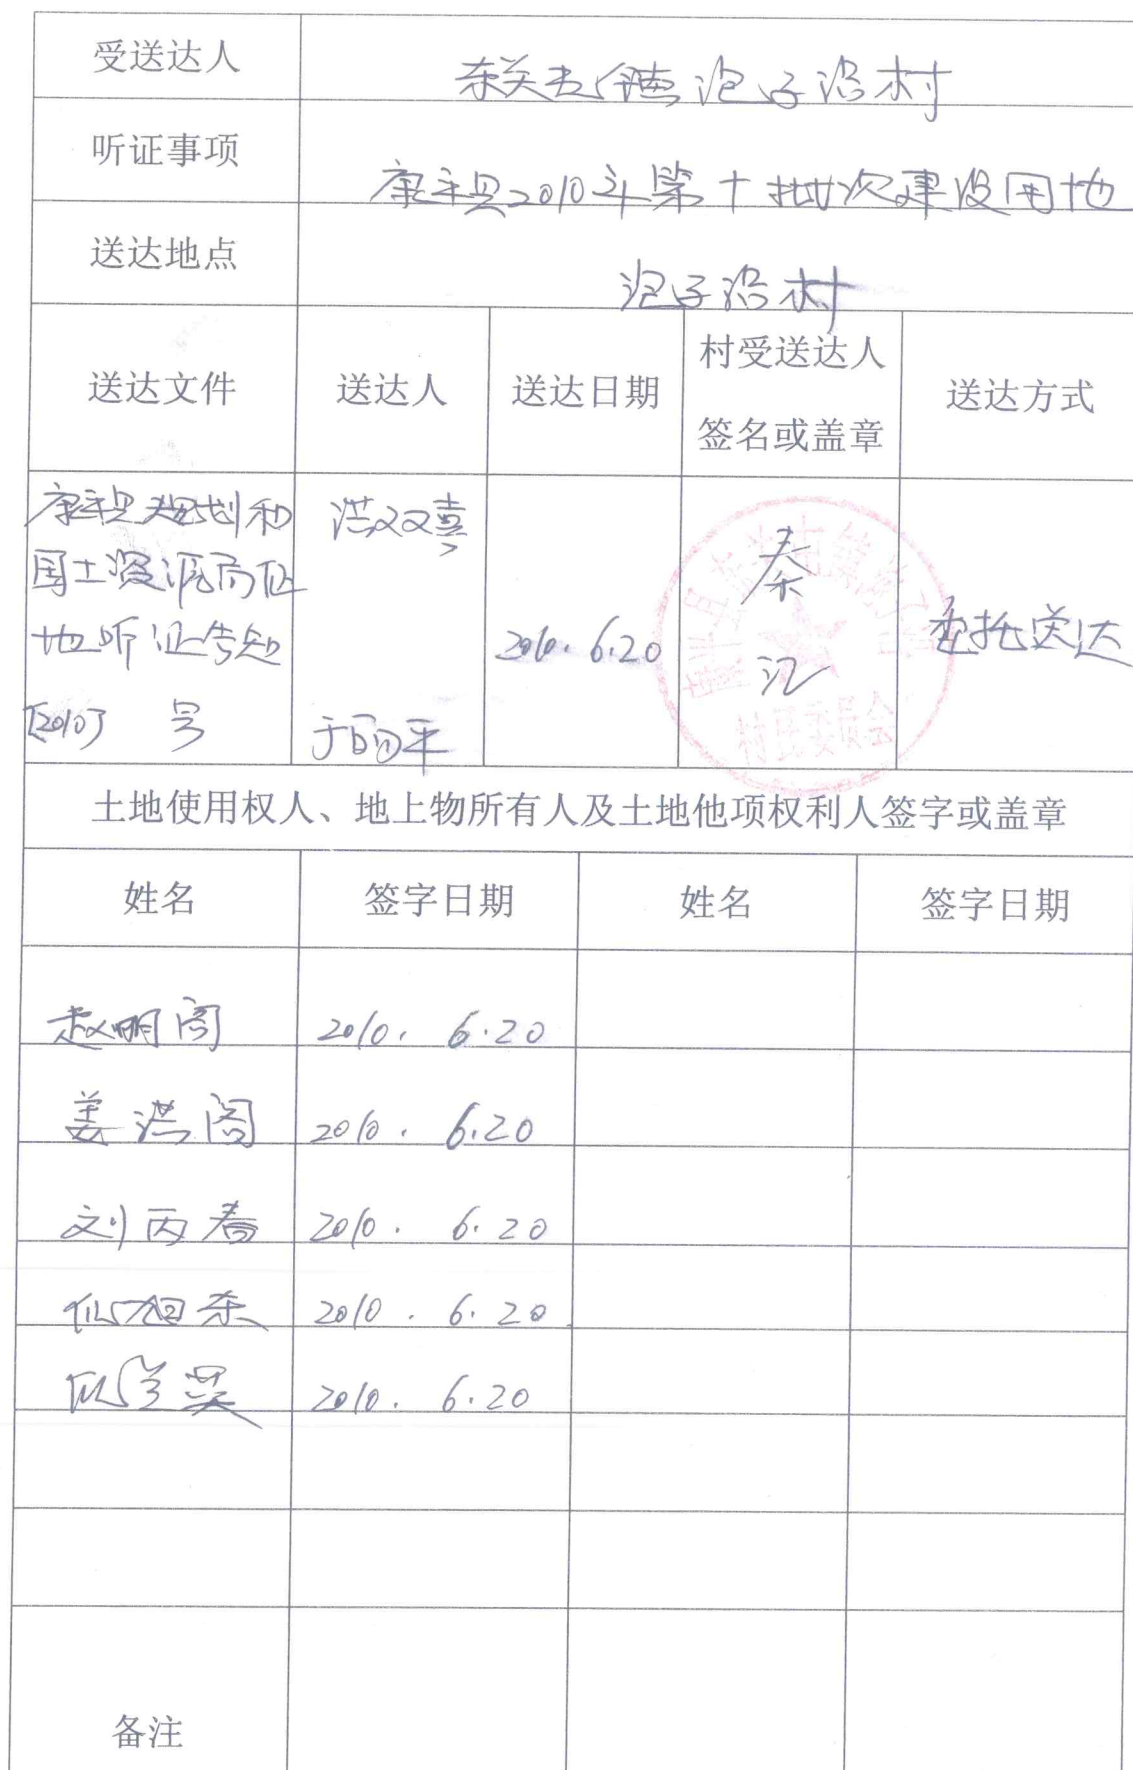 受送达人
东关屯镇泡子沿村
听证事项
康平县2010年第十批次建设用地
送达地点
泡子沿村
送达文件
送达人
送达日期
村受送达人
签名或盖章
送达方式
康平县规划和
国土资源局征
地听证告知
[2010] 号
洪双喜
于丽平
2010.6.20
秦
江
村民委员会
委托送达
土地使用权人、地上物所有人及土地他项权利人签字或盖章
姓名 签字日期 姓名 签字日期
赵明阁 2010. 6.20
姜洪阁 2010. 6.20
刘丙春 2010. 6.20
旭东 2010. 6.20
2010. 6.20
备注